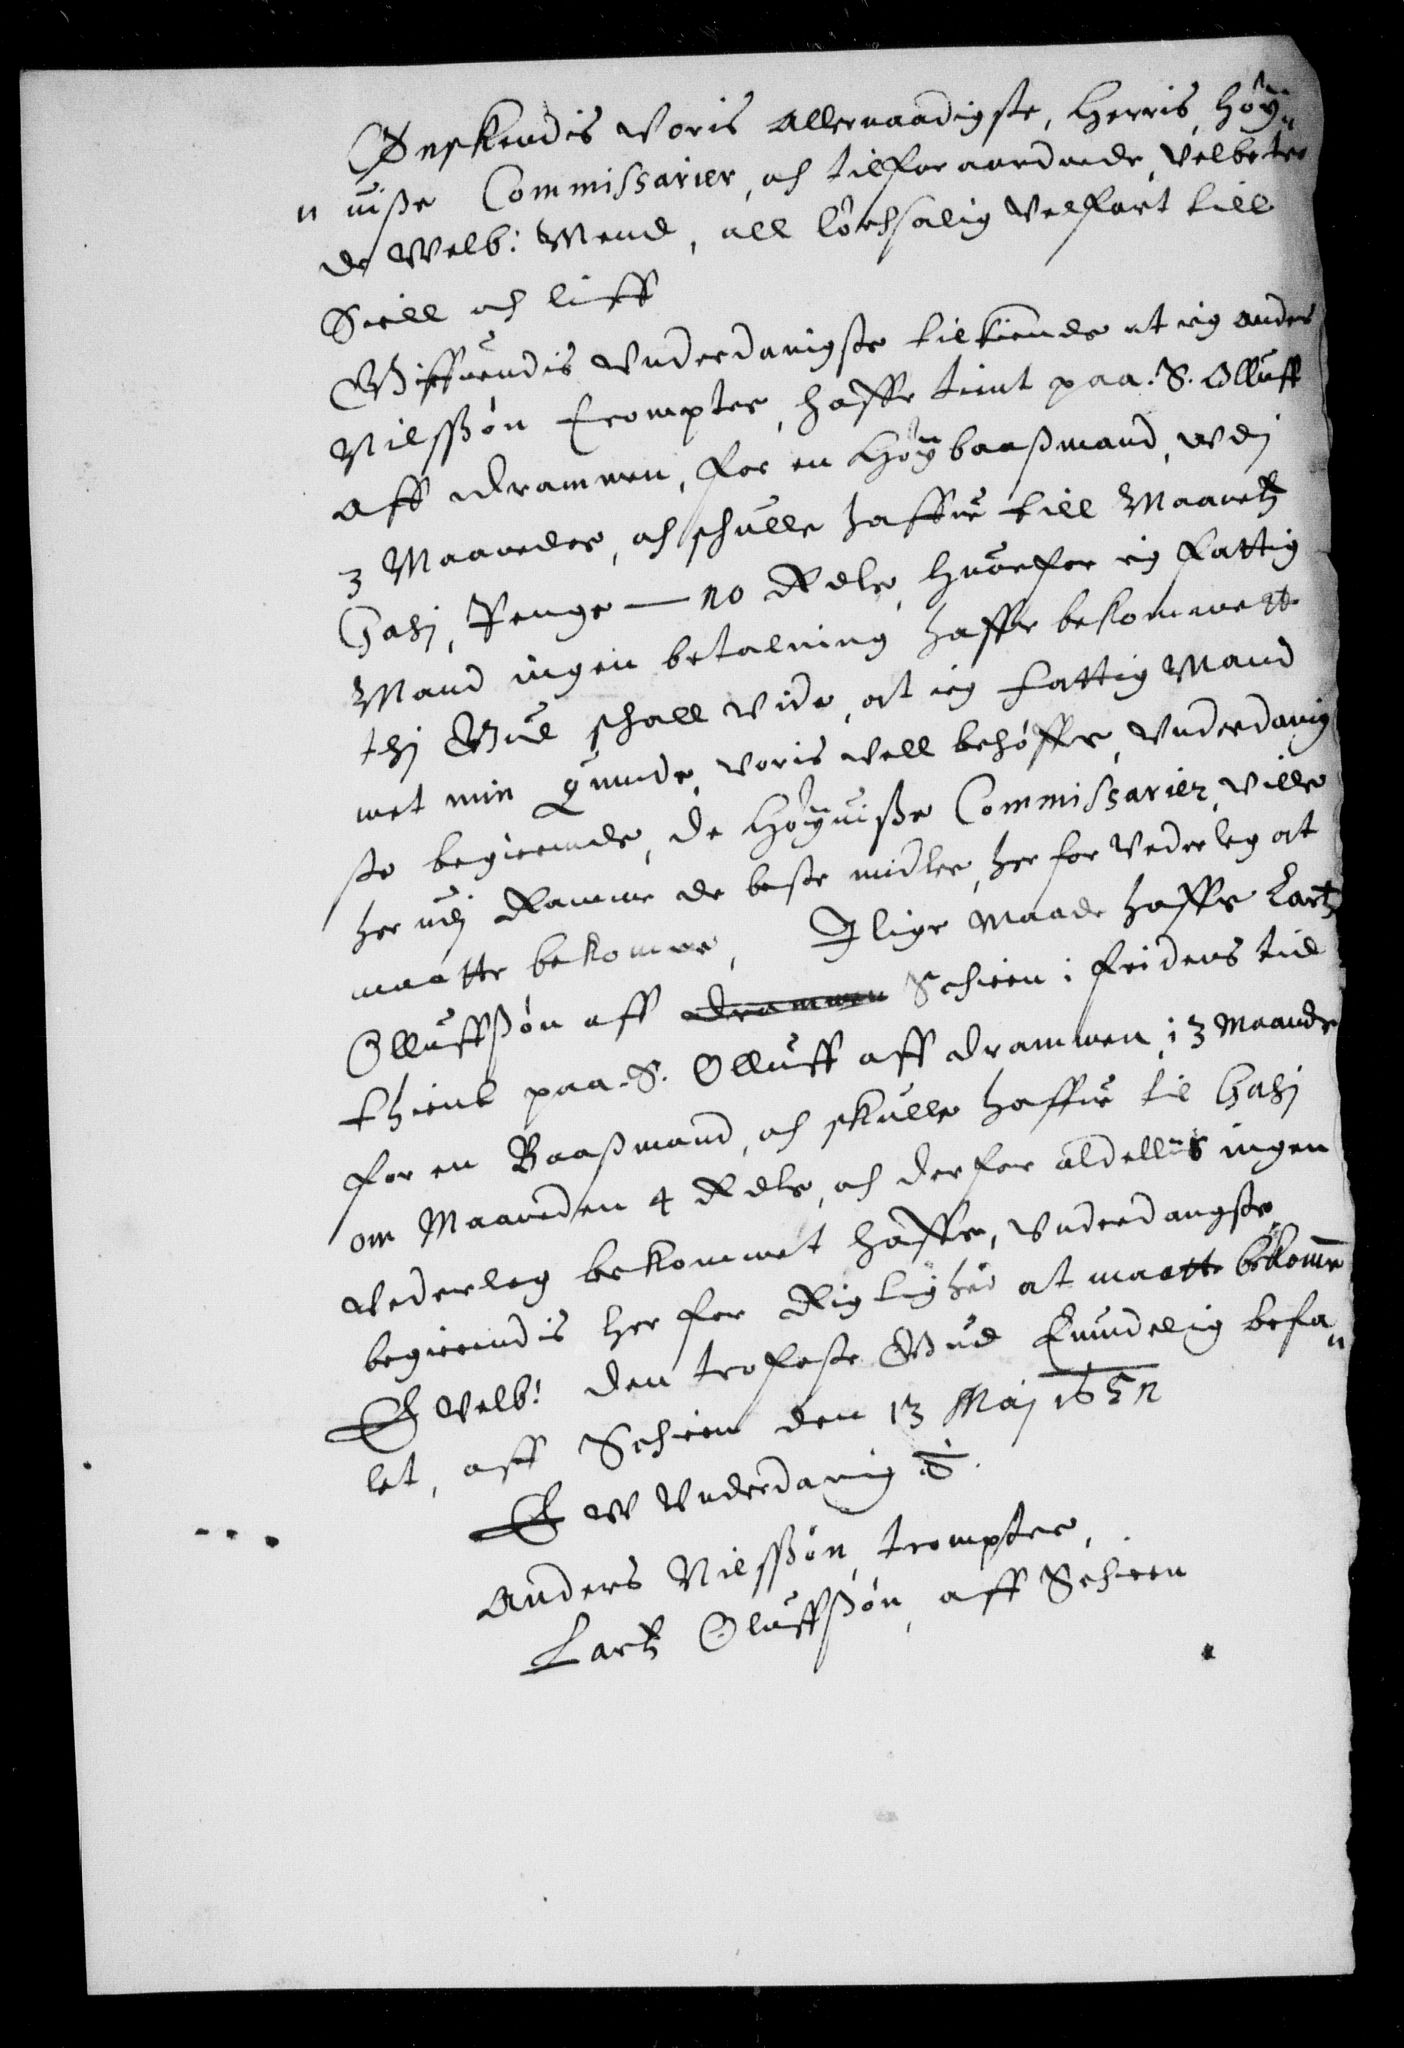 Ønskendis Voris Allernaadigste, Herris, Høÿ"
"uiße Commissarier, och tilforaardnede, Velbetro
de Welb: Mend, all löchsalig Velfart till
Siell och liff
Giffuendis Vnderdanigste tilkiende at ieg Anders
Nilssøn Trompter, haffr tient paa. S. Olluff
aff drammen, for en Høÿbaaßmand, vdj
3 Maaneder, och schulle haffue till Maanetz
Gasj, Penge — 10 Rdlr, huorfor ieg fattig
Mand ingen betalning haffr bekommett
thj Gud schall vide, at ieg fattig Mand
met min quinde, voris vell behøffr, Vnderdanig
ste begierende, de Høÿuiße Commissarier, ville
her udj Ramme de beste midler, her for Vederleg at
maatte bekomme, J lige Maade haffr Lartz
Olluffßøn aff drammen Schien i feidens tid
thient paa. S. Olluff aff drammen, i 3 Maander
for en Baaßmand, och skulle haffue til Gasj
om Maaneden 4 Rdlr, och derfor aldelliis ingen
Vederleg bekommet haffr, Vnderdangste
begierendis her for Rigtighed at maatte bekomme
E Velb: den trofaste Gud Euindelig befa"
let, aff Schien den 13 Maj 1652
E W Vnderdanig
Anders Nilssøn trompter,
Lartz Oluffßøn, aff Schien